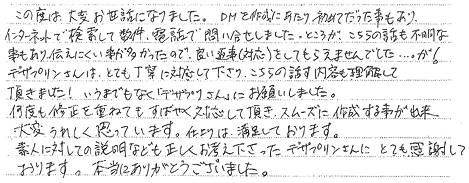 この度は大変お世話になりました。DMを作成にあたり初めてだった事もあり、
インターネットで検索して数件、電話で問い合せしました。ところが、こちらの話も不明な
事もあり、伝えにくい事が多かったので、良い返事(対応)をしてもらえませんでした…。が!
デザプリンさんは、とても丁寧に対応して下さり、こちらの話す内容も理解して
頂きました! いうまでもなく「デザプリンさん」にお願いしました。
何度も修正を重ねてもすばやく対応して頂き、スムーズに作成する事が出来、
大変うれしく思っています。仕上りは、満足しております。
素人に対しての説明なども正しくお考え下さったデザプリンさんにとても感謝して
おります。本当にありがとうございました。